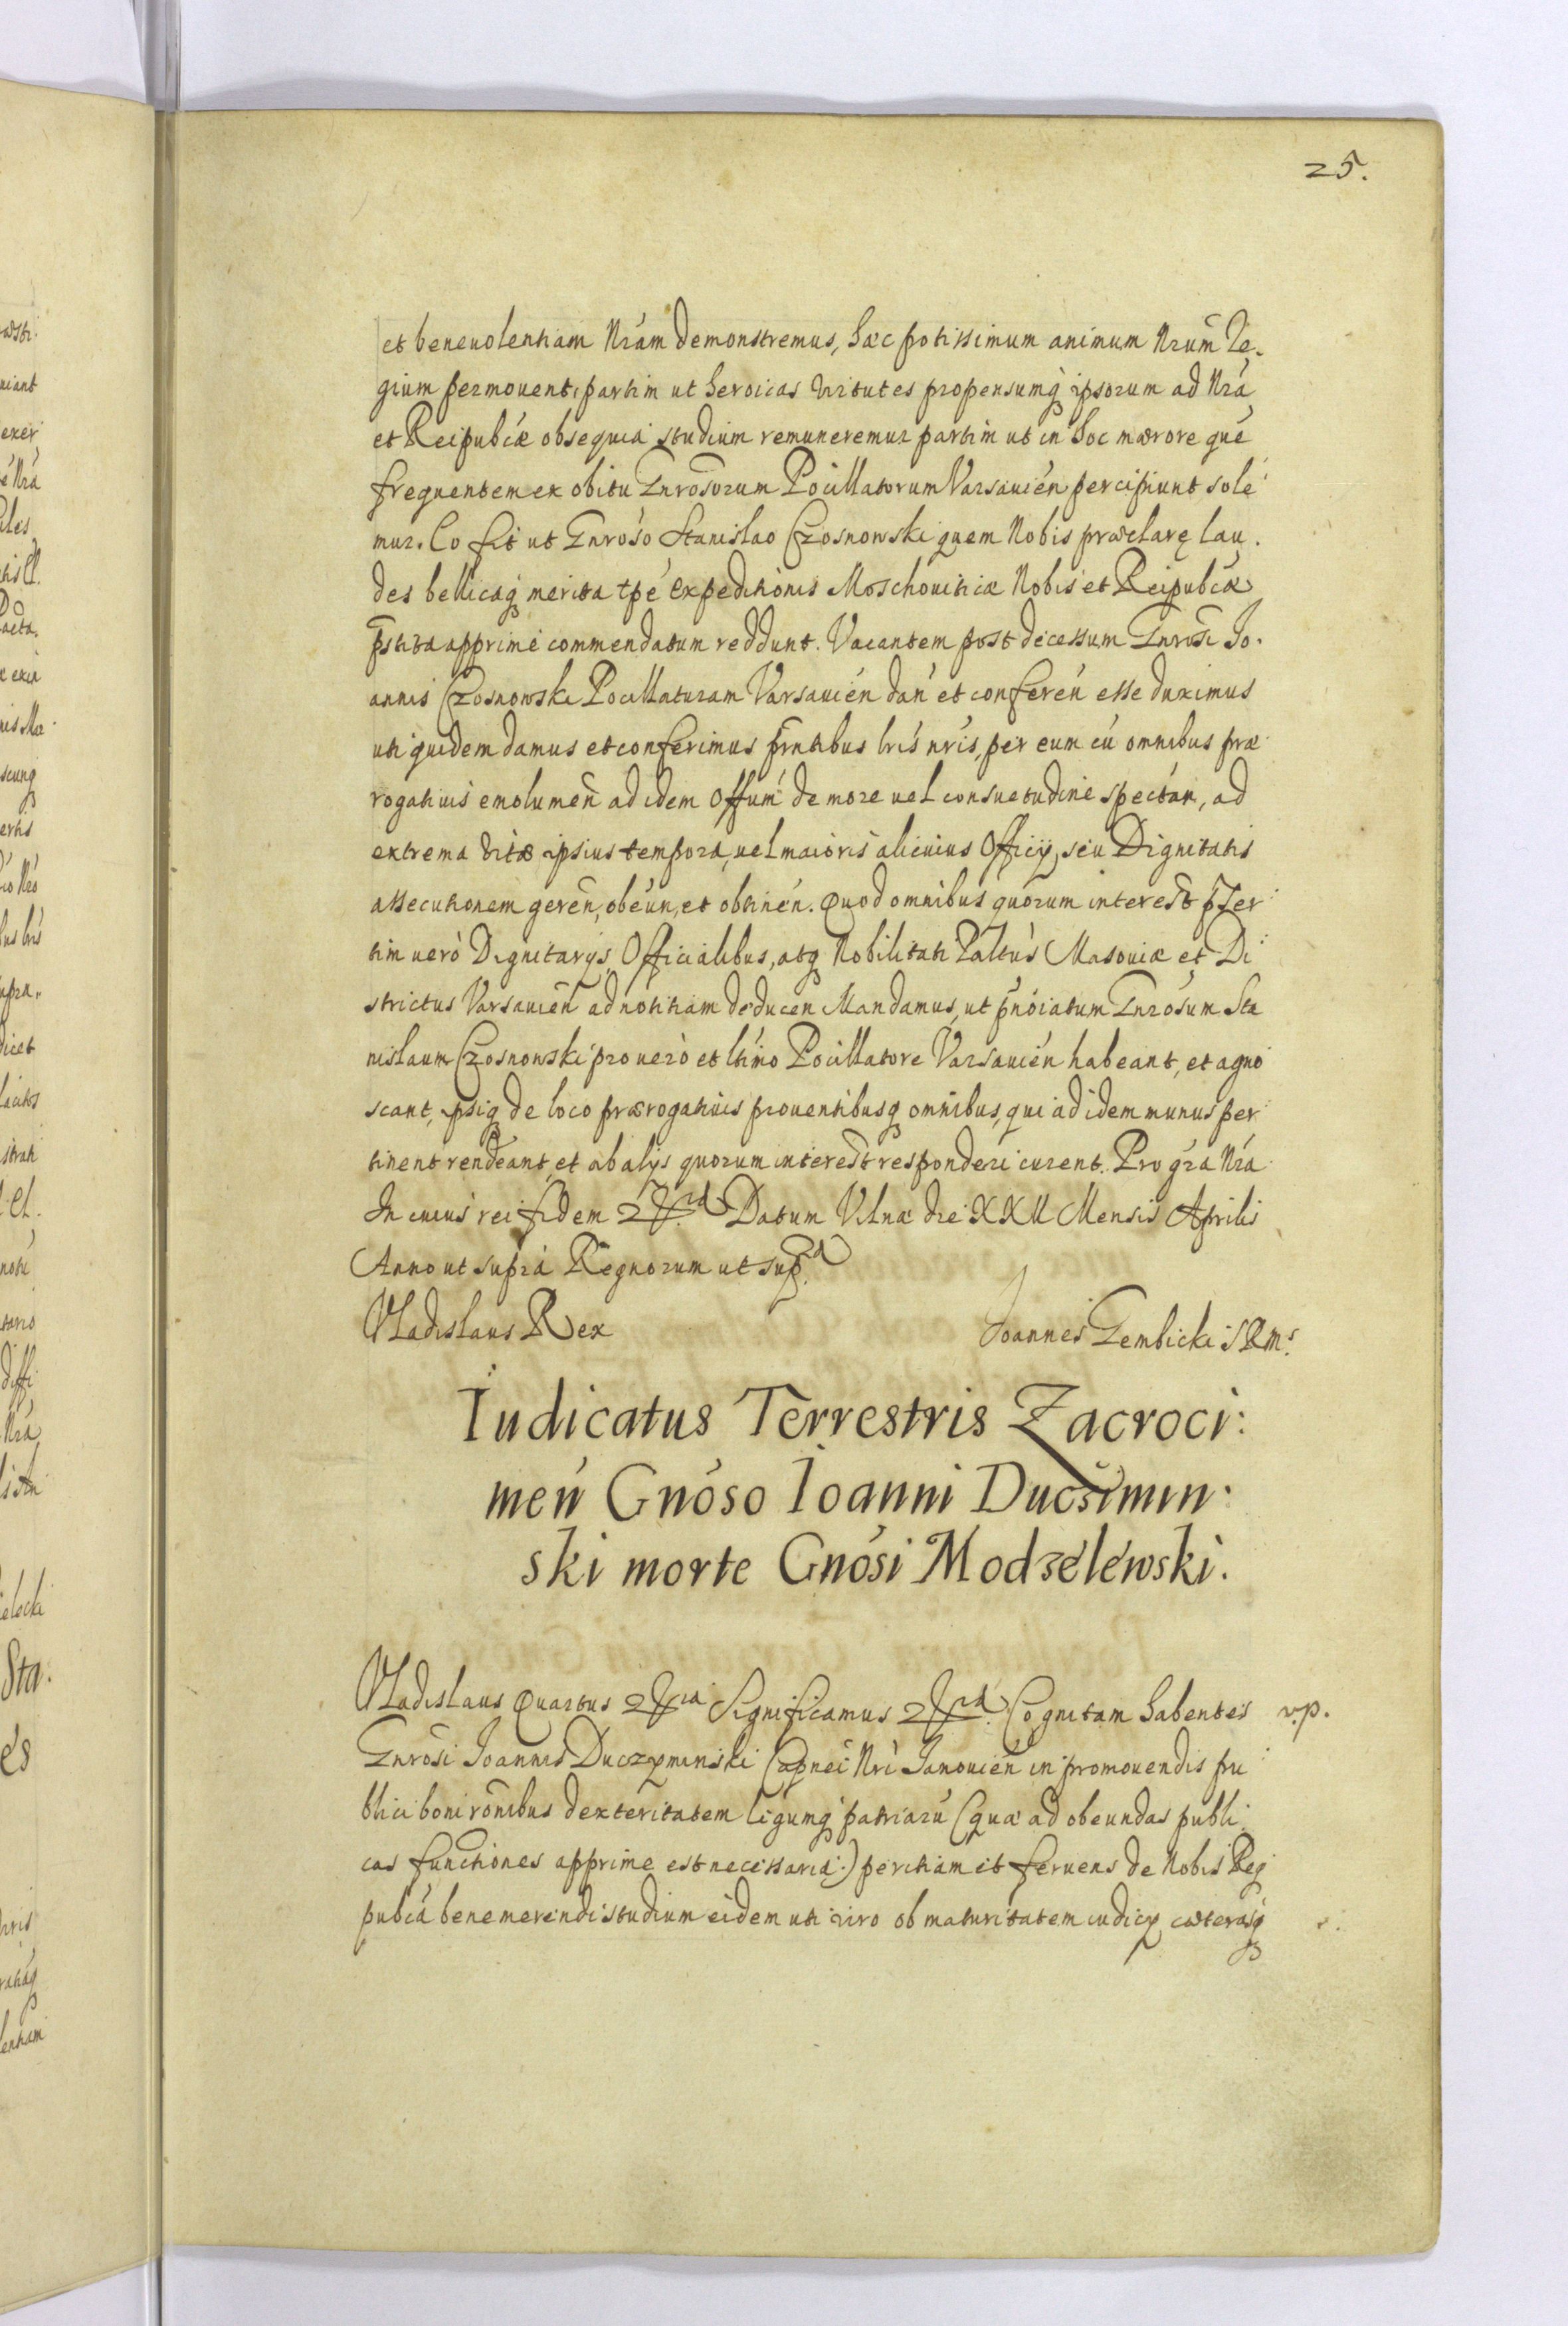 25.
et beneuolentiam Nrám demonstremus, hæc potissimum animum Nrum Re-
gium permouent, partim ut heroicas virtutes propensumq ipsorum ad Nrá
et Reipubcæ obsequia studium remuneremur partim ut in hoc mærore qué
frequentem ex obitu Gnrosorum Pocillatorum Varsauién percipiunt, solé
mur. Eo fit ut Gnroso Stanislao Czosnowski quem Nobis præclaræ lau-
des bellicaq merita tpé expeditionis Moschouiticæ Nobis et Reipubcæ
pstita apprime commendatum reddunt. Vacantem post decessum Gnrosi Jo-
annis Czosnowski Pocillaturam Varsauién dan et conferén esse duximus
uti quidem damus et conferimus pntibus lris nris, per eum cú omnibus præ
rogatiuis emolumen ad idem Offum de more uel consuetudine spectán, ad
extrema vitæ ipsius tempora, uel maioris alicuius Officij, seu Dignitatis
assecutionem geren, obeun, et obtinén. Quod omnibus quorum interest pser
tim uerò Dignitarijs, Officialibus, atq Nobilitati Paltus Masouiæ et Di
strictus Varsauien ad notitiam deducen Mandamus, ut pnoiatum Gnrosum Sta
nislaum Czosnowski pro uerò et ltimo Pocillatore Varsauién habeant, et agno
scant, ipsiq de loco prærogatiuis prouentibusq omnibus, qui ad idem munus per
tinent rendeant, et ab alijs quorum interest responderi curent. Pro gra Nra
In cuius rei fidem Datum Vilnæ die XXII Mensis Aprilis
Anno ut supra Regnorum ut sup.
Vladislaus Rex Joannes Gembicki SRMs.
Iudicatus Terrestris Zacroci:
men Gnoso Ioanni Ducsimin:
ski morte Gnosi Modzelewski.
Vladislaus Quartus Significamus Cognitam habentes v.p.
Gnrosi Joannis Duczyminski Capnei Nri Janouién in promouendis pu
blici boni ronibus dexteritatem legumq patriarú (quæ ad obeundas publi
cas functiones apprime est necessaria.) peritiam et feruens de Nobis Req
pubcá benemerendi studium eidem uti viro ob maturitatem iudicij cæterasq